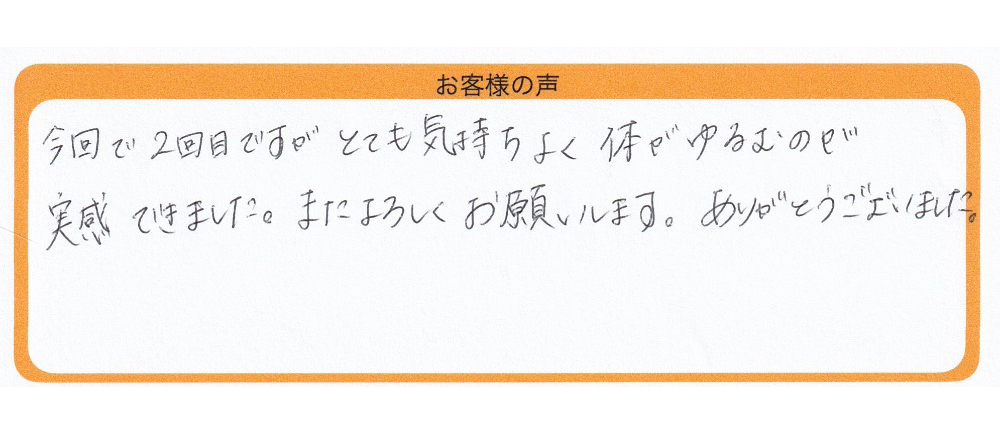 お客様の声
今回で2回目ですが とても気持ちよく 体がゆるむのが
実感 できました。またよろしく お願いします。ありがとうございました。